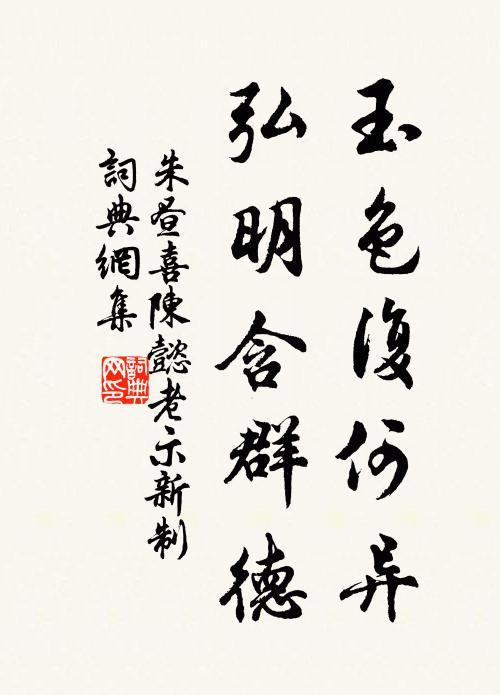 玉色復何异
弘明含群德
朱晝喜陳懿老示新制
詞典網集
詞典網印